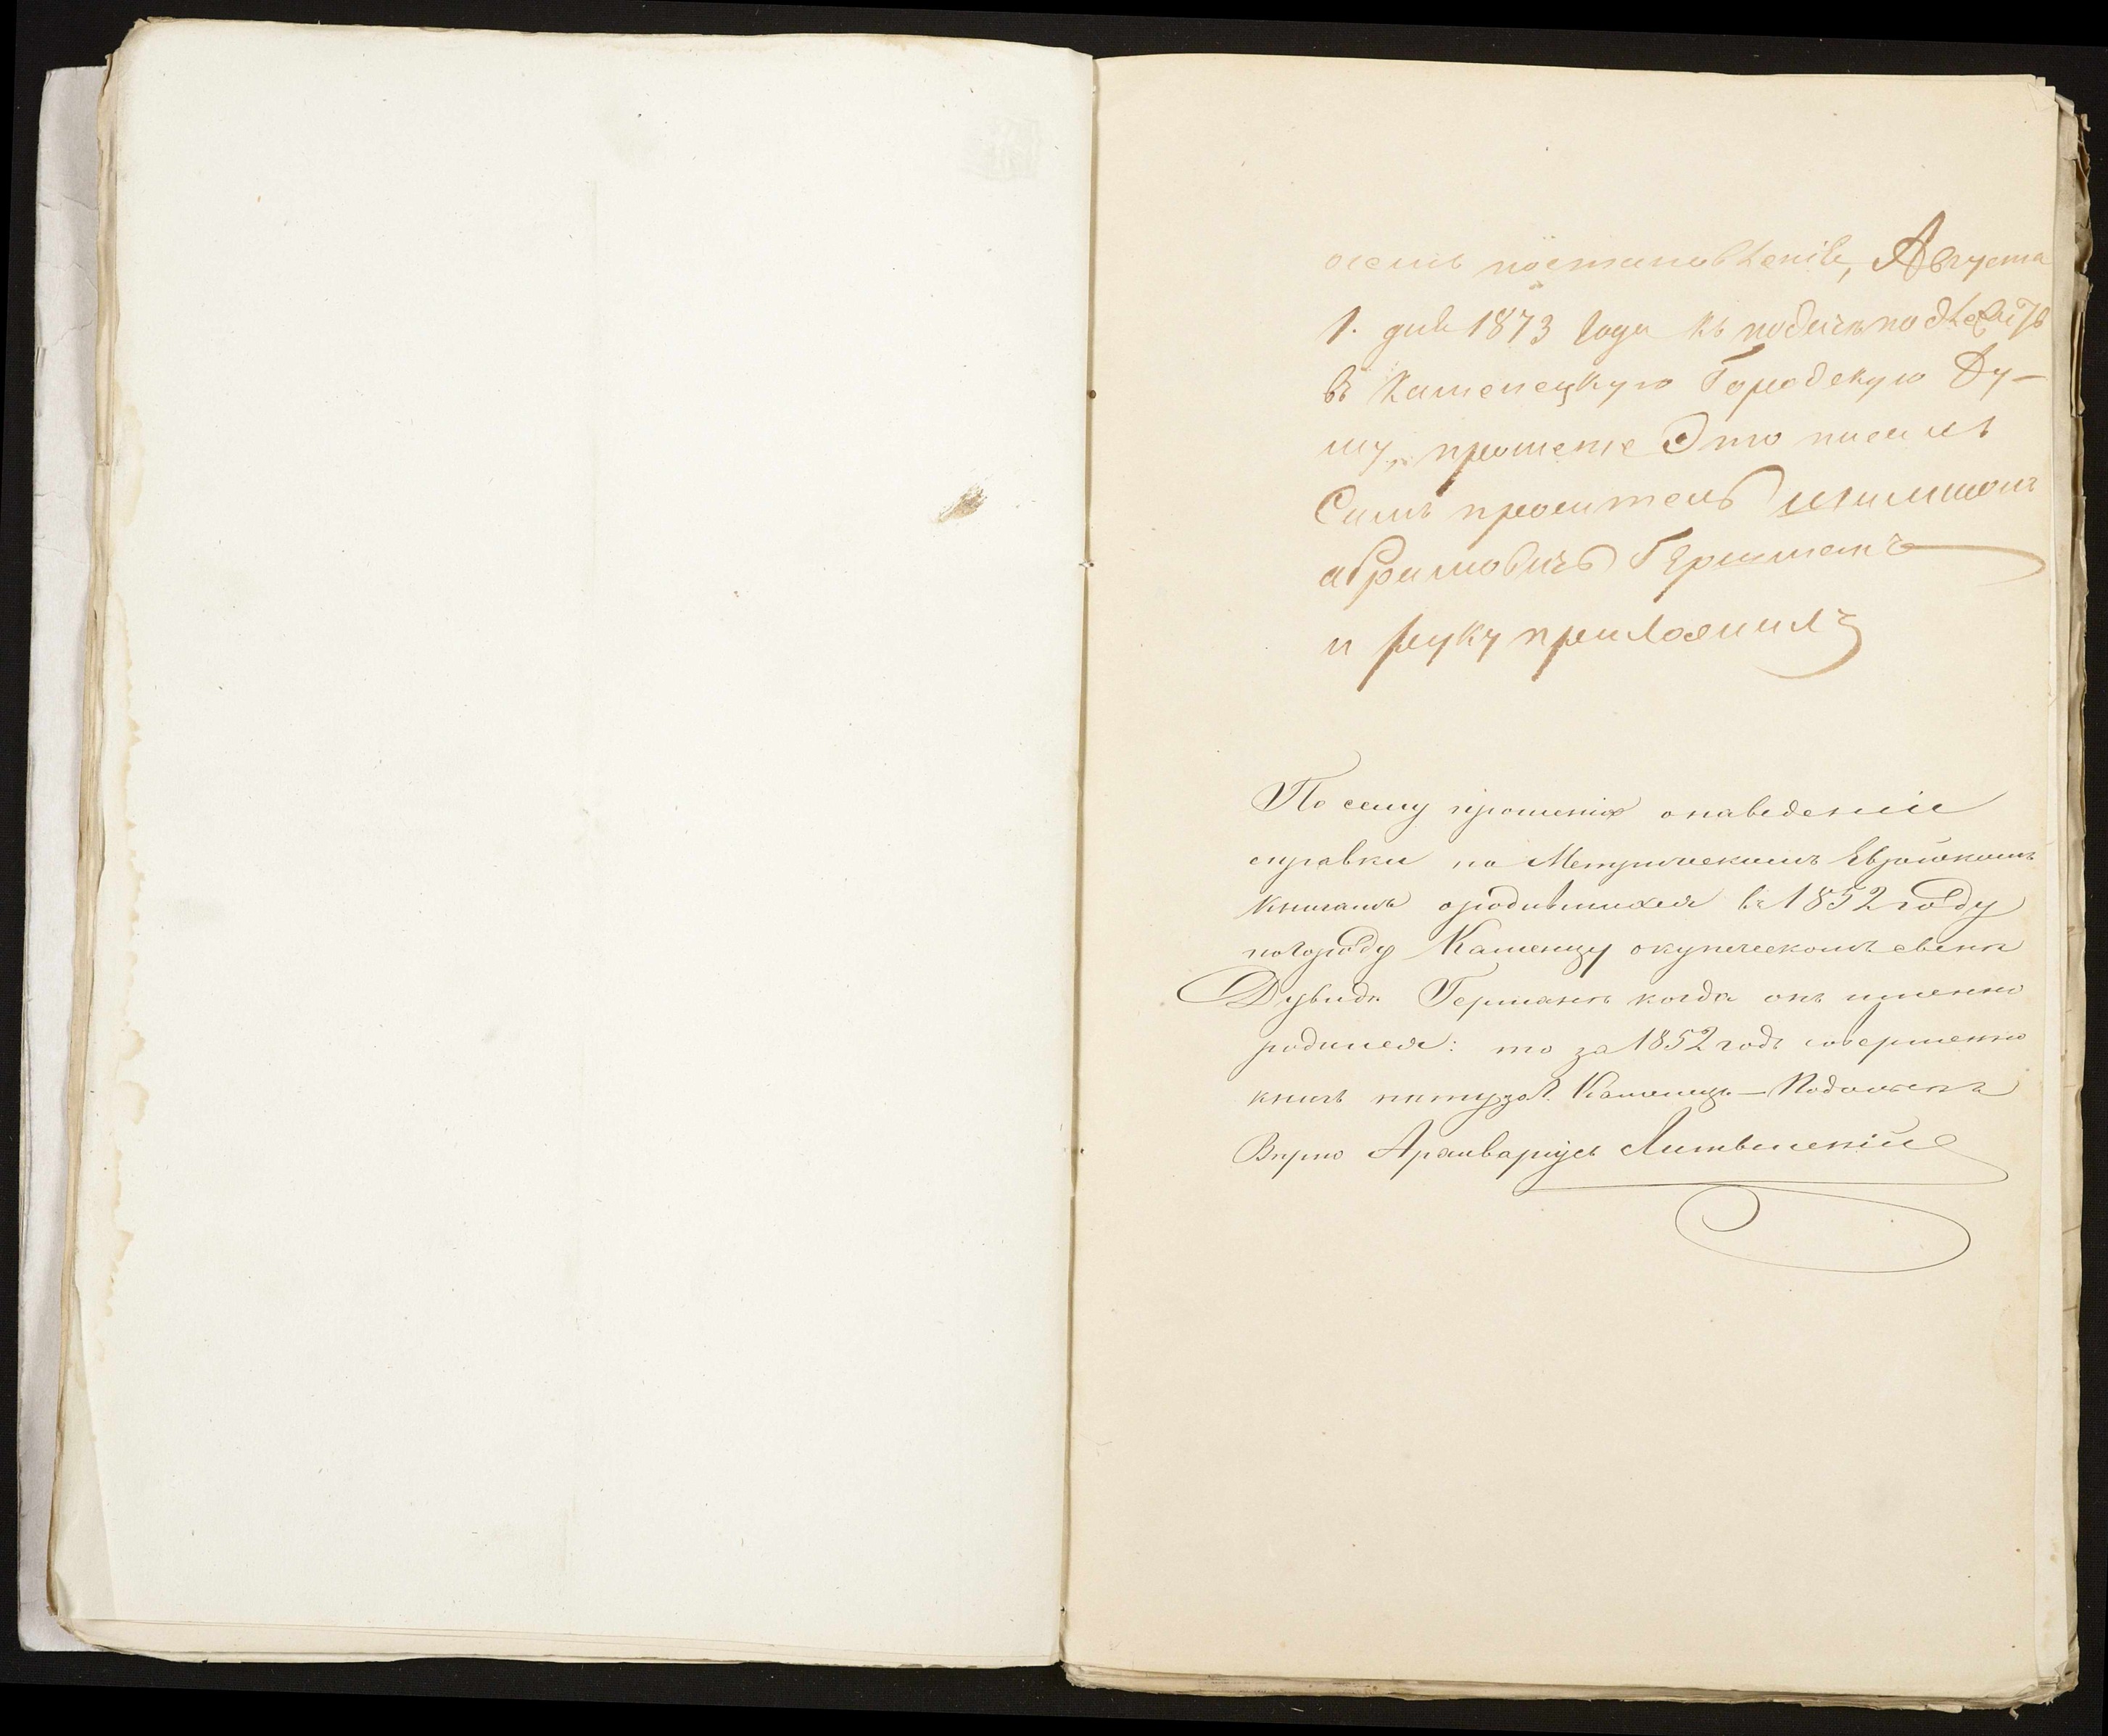 осемъ постановленіе, Августа
1. дня 1873 года къ подачѣ подлежитъ
въ Каменецкую Городскую Ду-
му, прошеніе Это писалъ
Самъ проситель
абрамовичъ Гершманъ
и руку приложилъ
По сему прошенію о наведеніи
справки по Метрическимъ Еврейскимъ
книгамъ о родившихся въ 1852 году
по городу Каменцу о купеческомъ сынѣ
Дувидѣ Германѣ когда онъ именно
родился: то за 1852 годъ совершенно
книгъ нѣту Каменецъ-Подольскъ
Вѣрно Архиваріусъ Литвинскій